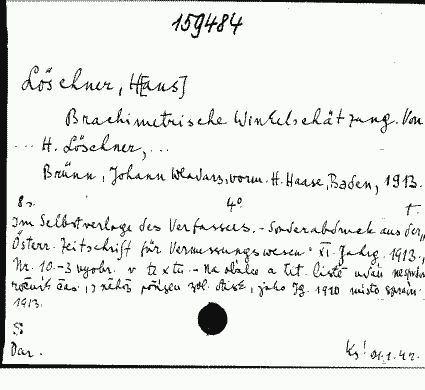 159484
Löschner, H[ans]
Brachimetrische Winkelschätzung. Von
... H. Löschner, ...
Brünn, Johann Wladarz, vorm. H. Haase, Baden, 1913.
8 s. 4° t.
Im Selbstverlage des Verfassers. - Sonderabdruck aus der „
Österr. Zeitschrift für Vermessungswesen" XI. Jahrg. 1913,
Nr. 10. - 3 vyobr. v txtu - Na obálce a tit. listě udán nesprávn.
ročník čas., z něhož pořízen zvl. otisk, jako Jg. 1910 místo správn.
1913.
S
Dar.
Ks! 21.1.42.